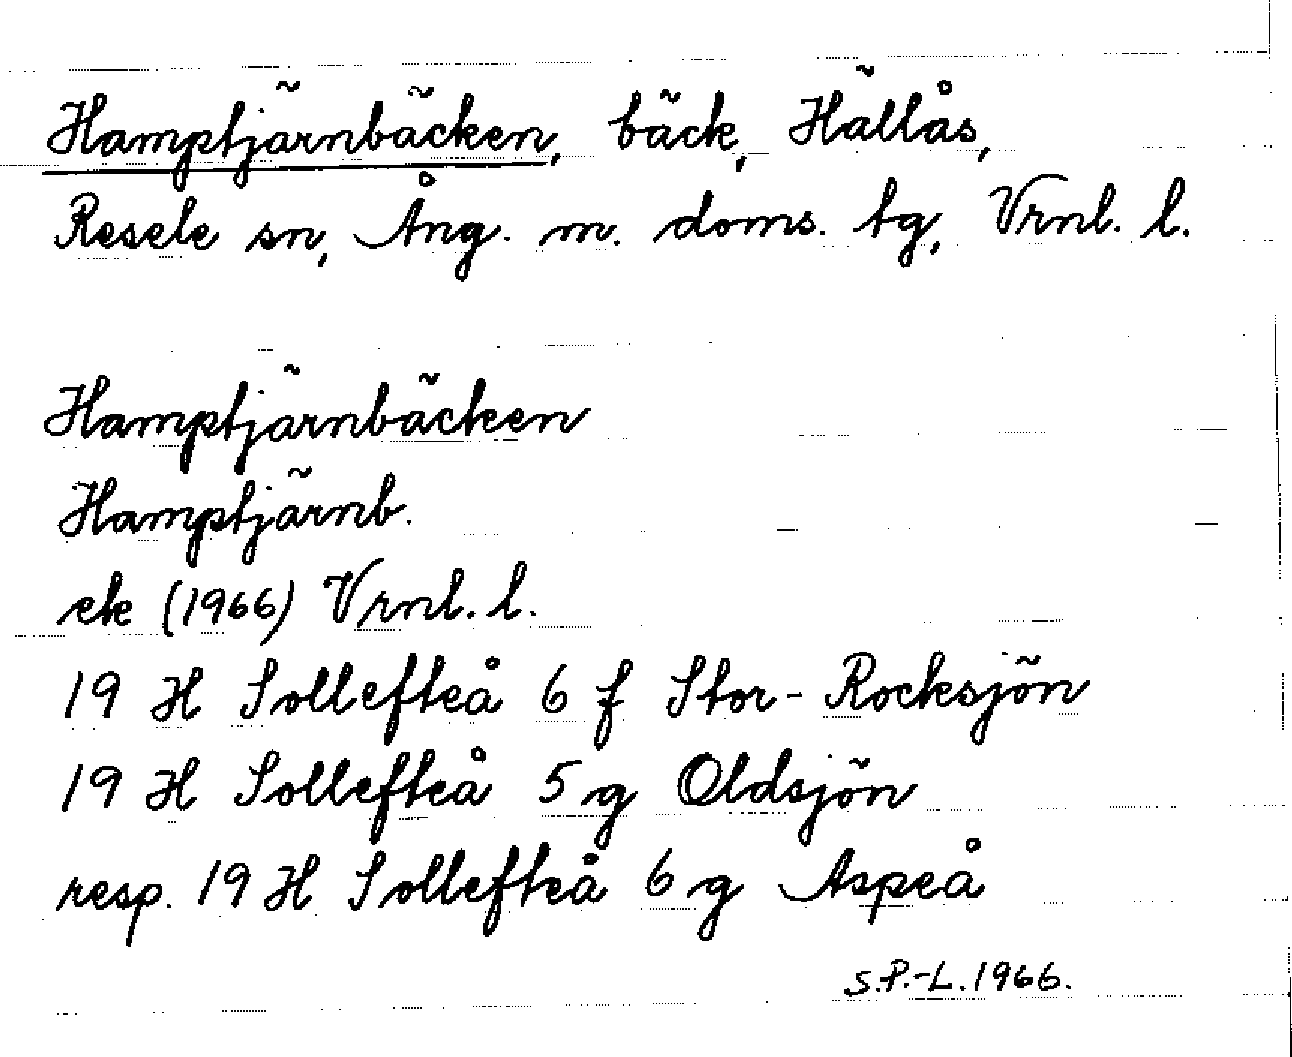 Hamptjärnbäcken, bäck, Hällås,
Resele sn, Ång. m. doms. tg, Vrnl. l.
Hamptjärnbäcken
Hamptjärnb.
ek (1966) Vrnl. l.
19 H Sollefteå 6 f Stor-Rocksjön
19 H Sollefteå 5 g Oldsjön
resp. 19 H Sollefteå 6 g Aspeå
S.P.-L. 1966.